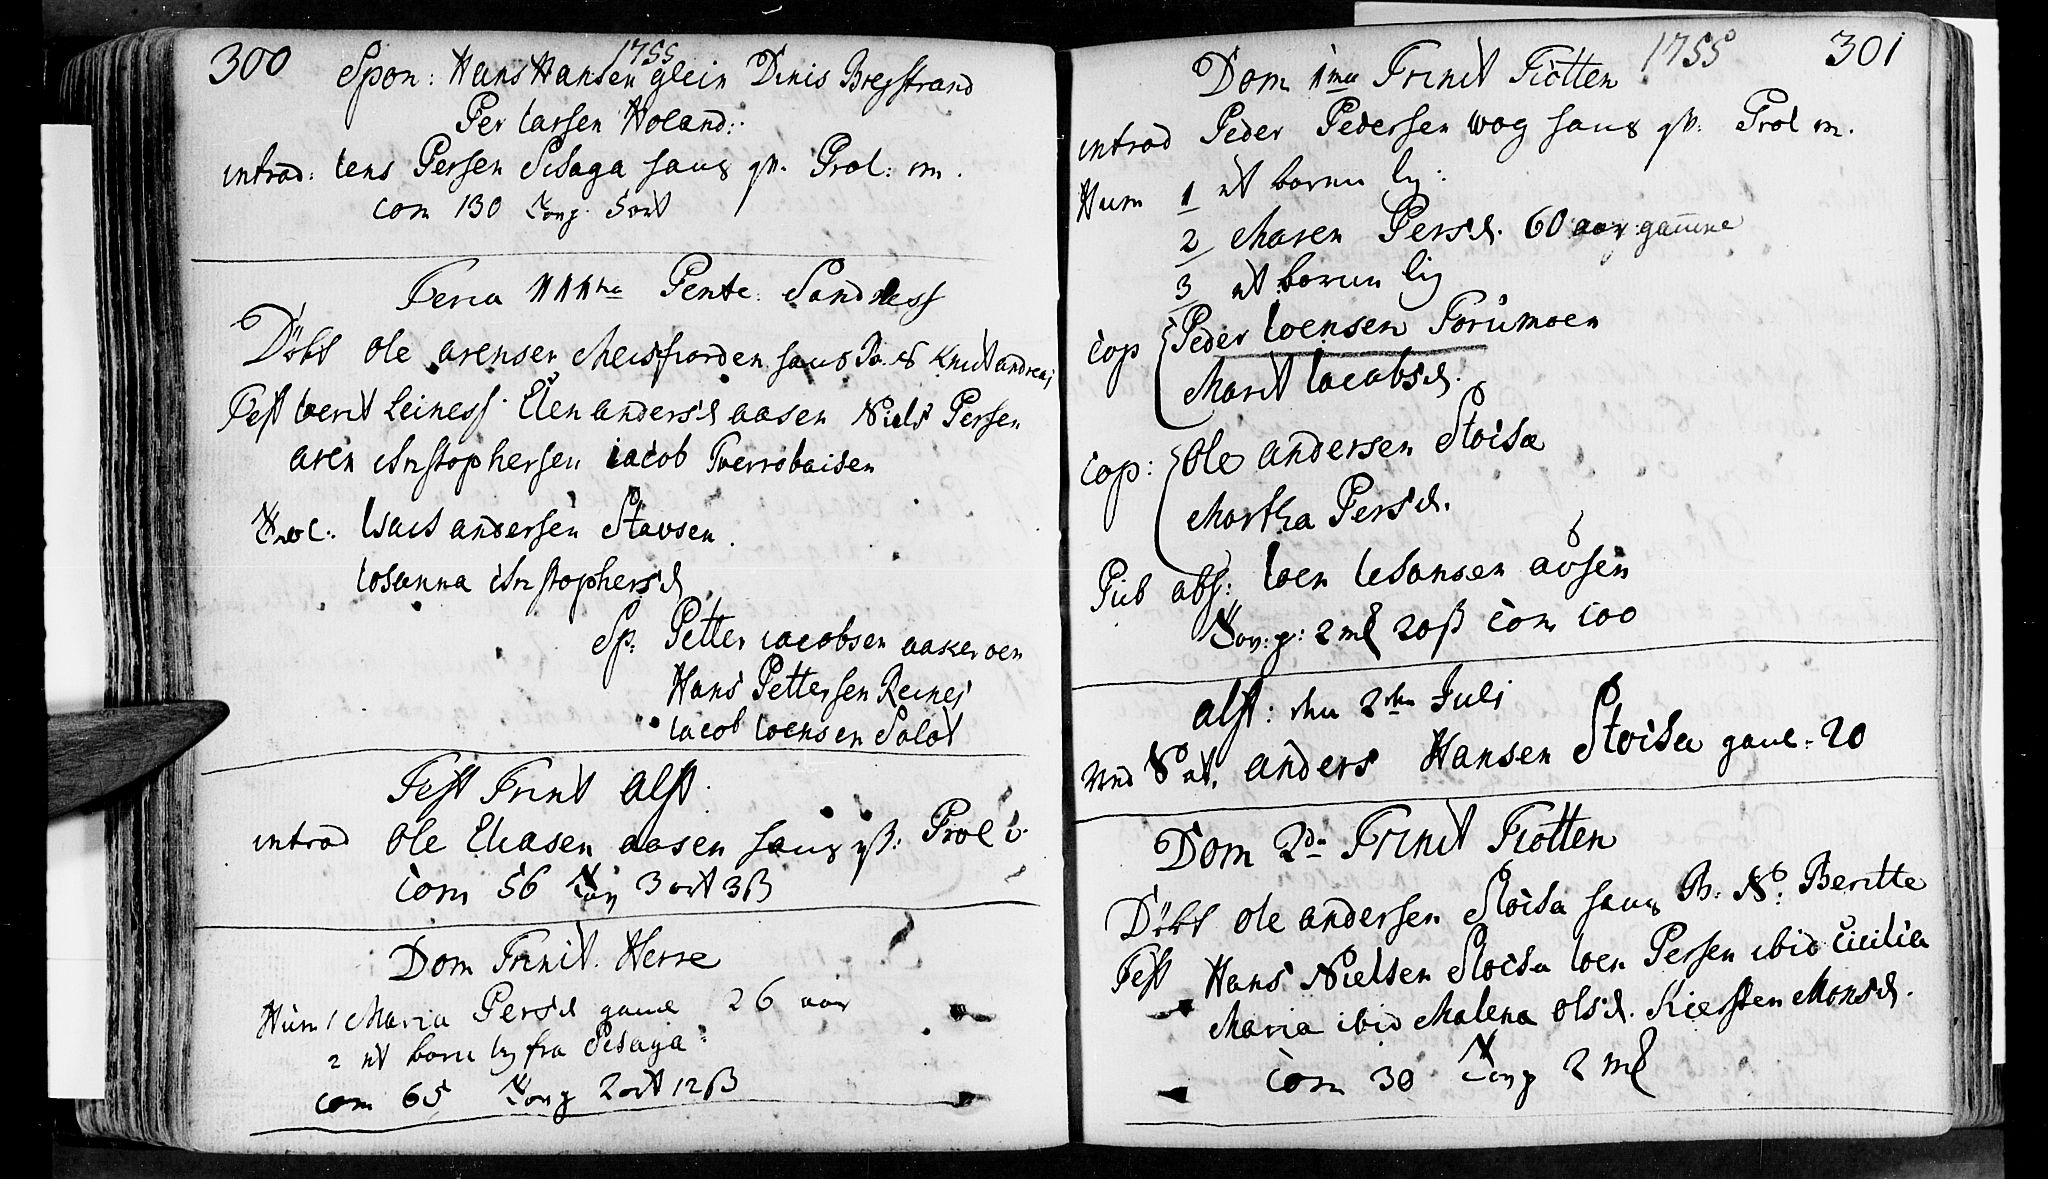 300
1755
Spon: Hans Hansen glein Dinis Bregstrand
Per larsen Holand:
introd: lens Persen Sisaga hans qv. Prol: m.
com 130 5 ort
Feria IIItia Pente: Sandness
Døbt Ole arensen Meisfiorden hans B. N Knut andreas
Test loerit Leiness. Elen andersd aasen Niels Persen
aren christophersen iacob Tverrobaisen
Trol: Isach andersen Stavsen.
Iosanna christophersd
Sp. Petter iacobsen aakeroen
Hans Pettersen Reines
Iacob loensen Saløt
Fest Trinit Alst.
introd Ole Eliasen aasen hans qv: Prol i.
com 56 3 ort 3 ß
Dom Trinit. Herrø
Hum 1 Maria Persd gaml 26 aar
2 et barn lig fra Sisaga:
com 65 2 ort 12 ß
1755
301
Dom 1ma Trinit Tiøtten
introd Peder Pedersen wog hans qv: Prol m.
Hum 1 et barn lig:
2 Maren Persd. 60 aar gamme
3 et barn lig
Cop Peder loensen Forumoen
Marit Iacobsd.
Cop: Ole andersen Stoisa
Martha Persd.
Pub abs: loen Iohansen ausen
2 mk 20 ß Com 100
alst: den 2den Juli
Und Nat. anders Hansen Stoisa gaml: 20
Dom 2da Trinit Tiøtten
Døbt Ole andersen Stoisa hans B: N: Beritte
Test Hans Nielsen Stoisa loen Persen ibid Cicilia
Maria ibid Malena olsd. Kiersten Monsd.
Com 30 2 mk